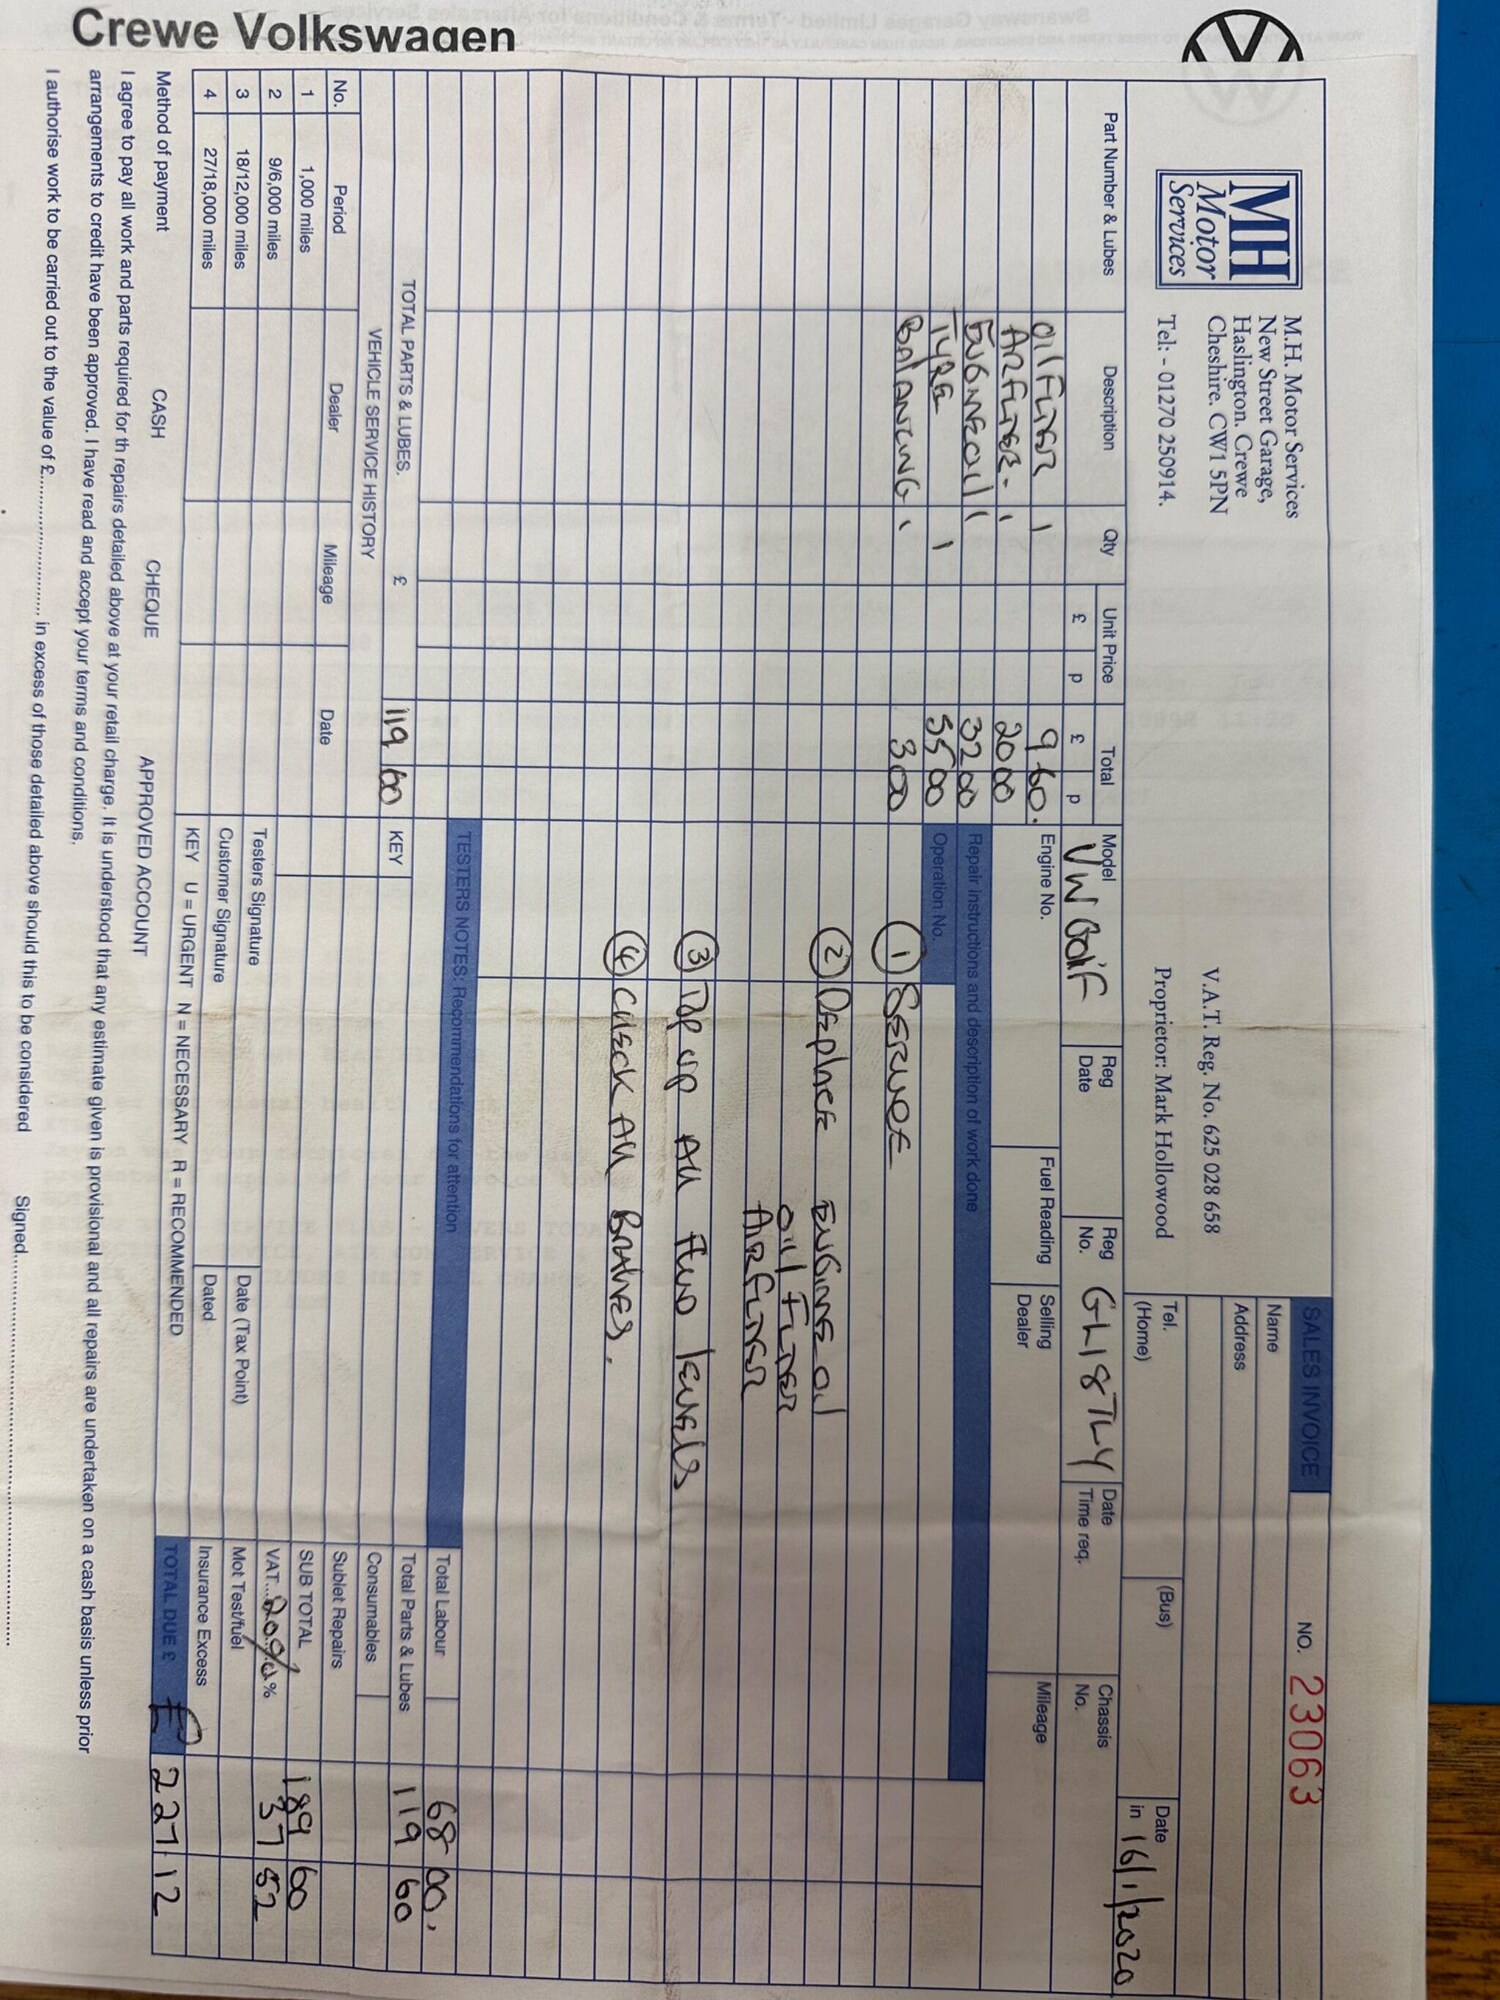 Crewe Volkswagen
MH
Motor
Services
M.H. Motor Services
New Street Garage,
Haslington. Crewe
Cheshire. CW1 5PN
Tel: - 01270 250914.
V.A.T. Reg. No. 625 028 658
Proprietor: Mark Hollowood
SALES INVOICE NO. 23063
Name
Address
Tel. (Home) (Bus)
Date in 16/1/2020
Part Number & Lubes Description Qty Unit Price Total
£ p £ p
OIL FILTER 1 9 60.
AIR FILTER - 1 20 00
ENGINE OIL 1 32 00
TYRE 1 55 00
BALANCING 1 3 00
TOTAL PARTS & LUBES. £ 119 60
Model VW Golf
Reg Date
Reg No. GL18TLY
Date Time req.
Chassis No.
Engine No.
Fuel Reading
Selling Dealer
Mileage
Repair instructions and description of work done
Operation No.
① SERVICE
② REPLACE ENGINE OIL
OIL FILTER
AIR FILTER
③ TOP UP All FLUID levels
④ CHECK All BRAKES.
TESTERS NOTES: Recommendations for attention
KEY
VEHICLE SERVICE HISTORY
No. Period Dealer Mileage Date
1 1,000 miles
2 9/6,000 miles
3 18/12,000 miles
4 27/18,000 miles
Testers Signature
Customer Signature
Date (Tax Point)
Dated
KEY U = URGENT N = NECESSARY R = RECOMMENDED
Total Labour 68 00.
Total Parts & Lubes 119 60
Consumables
Sublet Repairs
SUB TOTAL 189 60
VAT...20%...%  37 52
Mot Test/fuel
Insurance Excess
TOTAL DUE £ £ 227 12
Method of payment CASH CHEQUE APPROVED ACCOUNT
I agree to pay all work and parts required for th repairs detailed above at your retail charge. It is understood that any estimate given is provisional and all repairs are undertaken on a cash basis unless prior
arrangements to credit have been approved. I have read and accept your terms and conditions.
I authorise work to be carried out to the value of £.................... in excess of those detailed above should this to be considered Signed....................